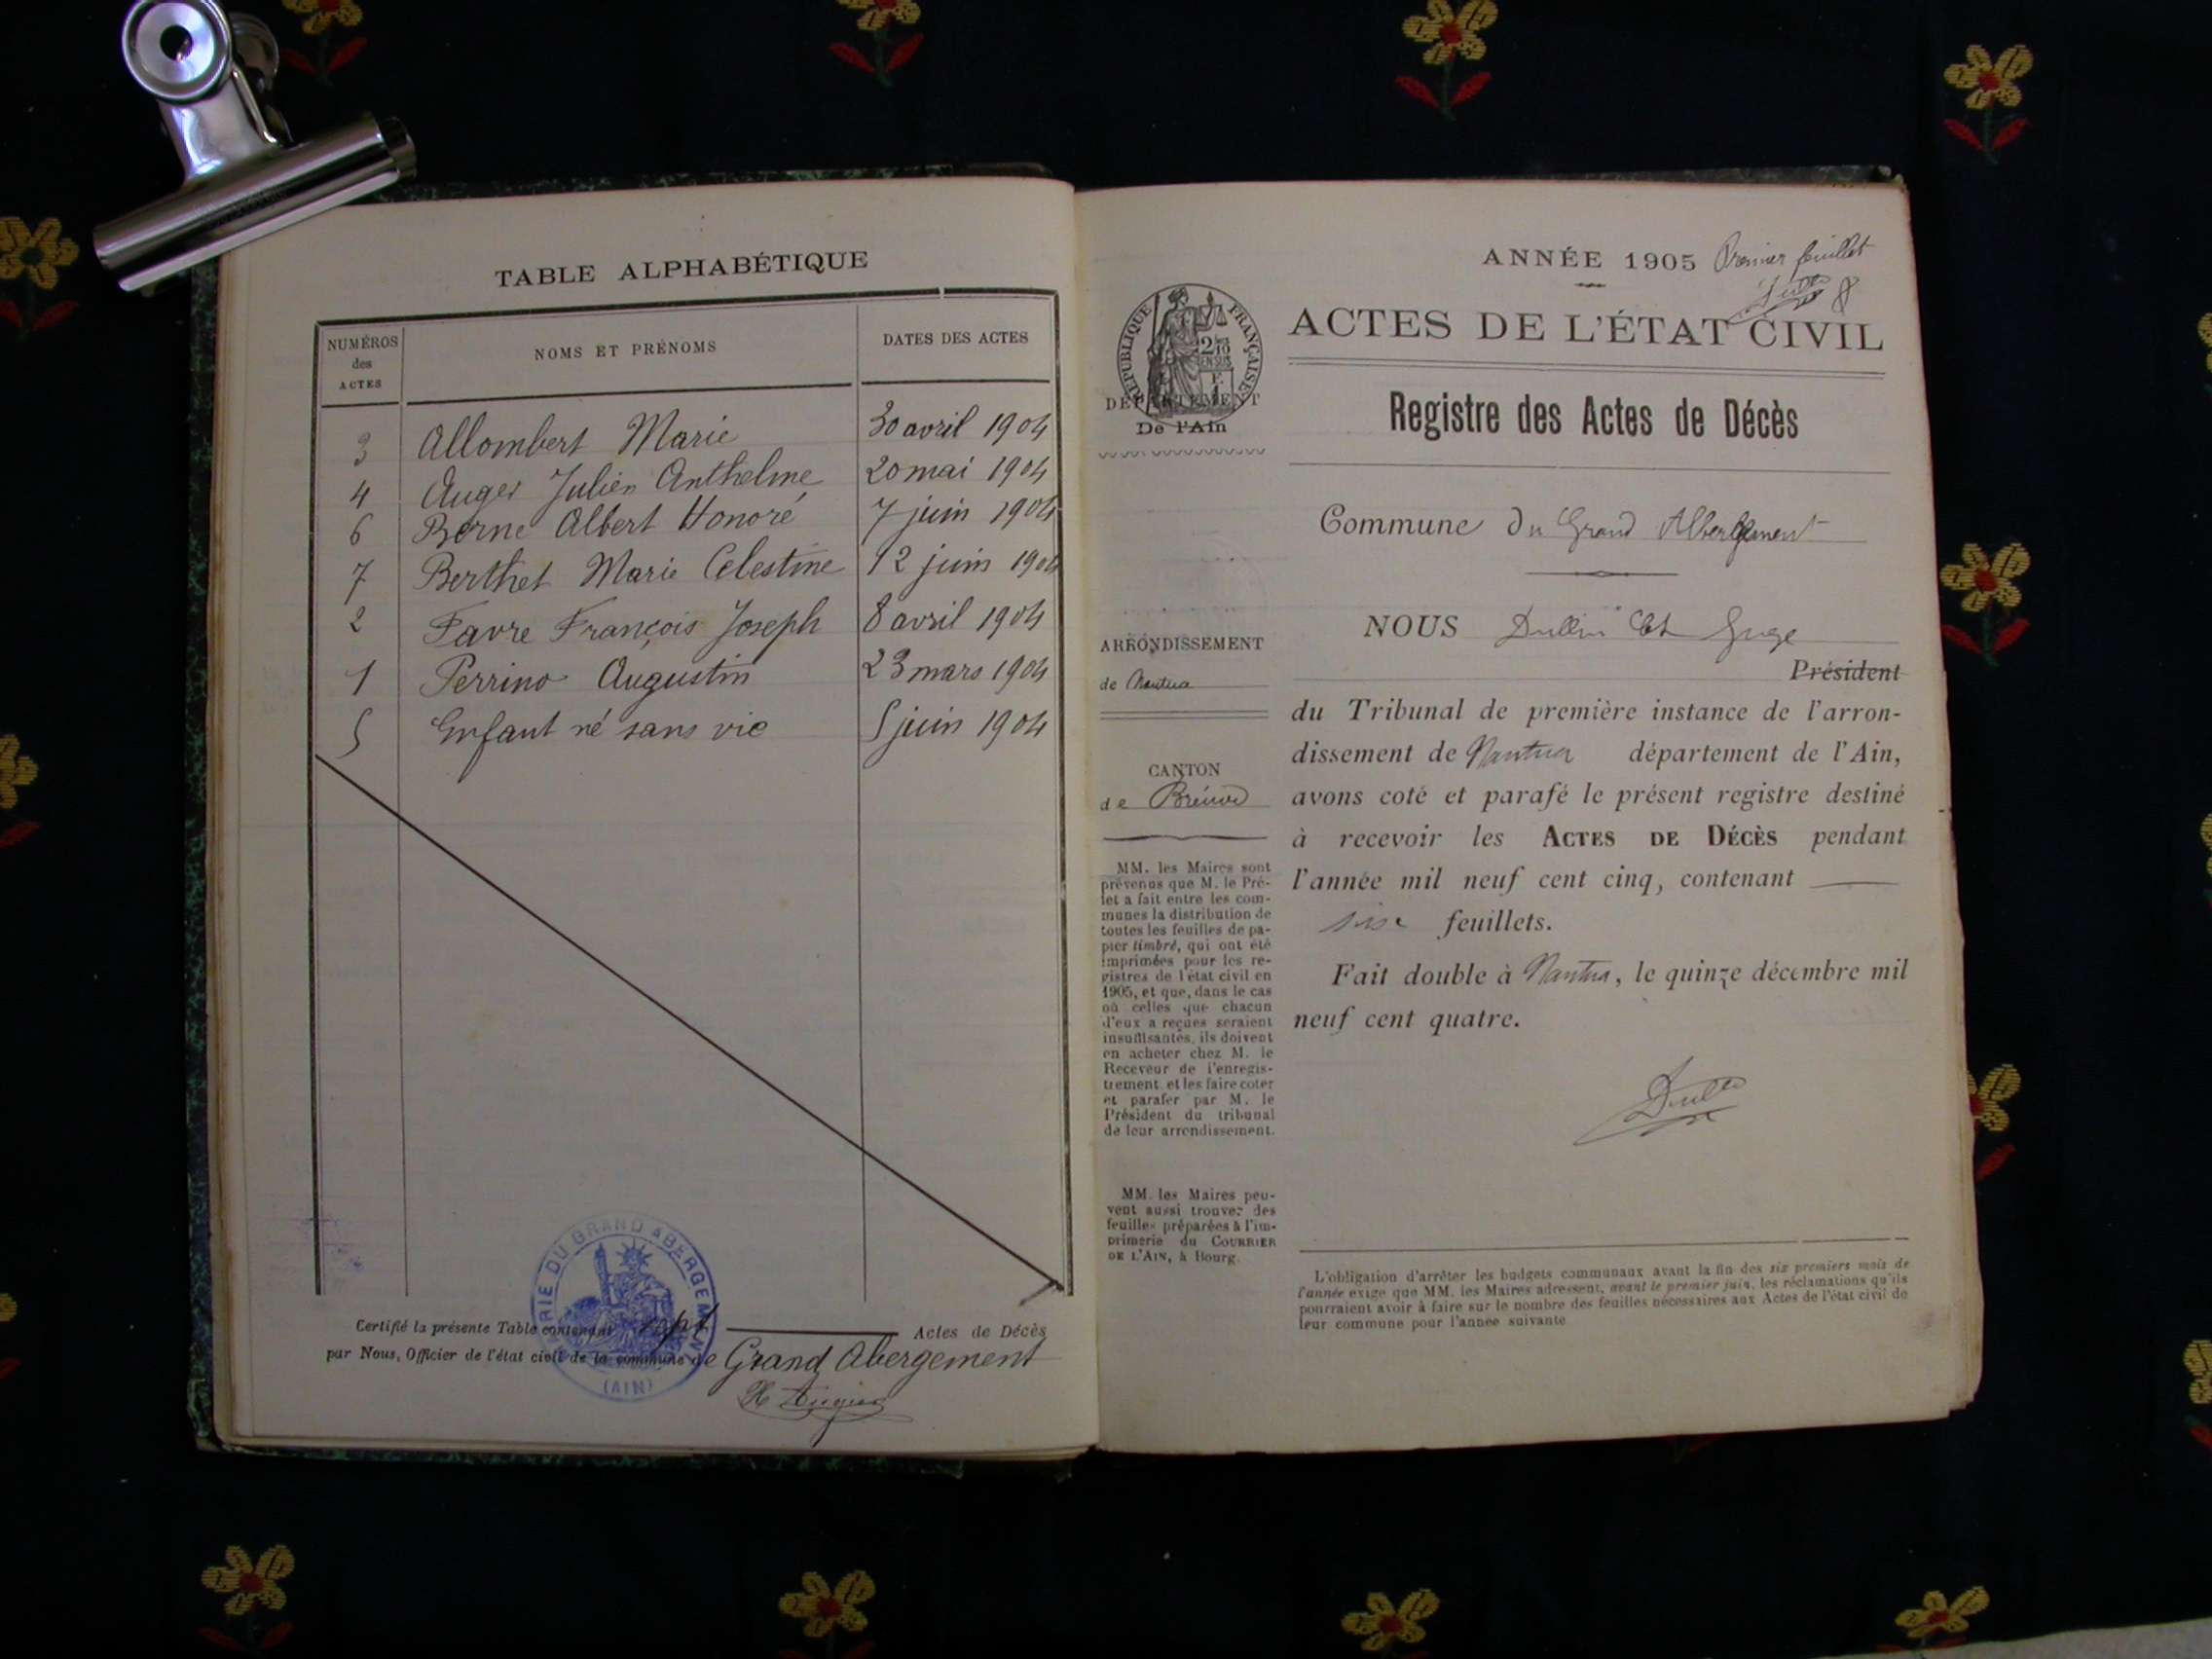 TABLE ALPHABÉTIQUE
NUMÉROS des ACTES
NOMS ET PRÉNOMS
DATES DES ACTES
3 Allombert Marie 30 avril 1904
4 Auger Julien Anthelme 20 mai 1904
6 Berne Albert Honoré 7 juin 1904
7 Berthet Marie Célestine 12 juin 1904
2 Favre François Joseph 8 avril 1904
1 Perrino Augustin 23 mars 1904
5 Enfant né sans vie 5 juin 1904
MAIRIE DU GRAND ABERGEMENT
(AIN)
Certifié la présente Table contenant sept Actes de Décès
par Nous, Officier de l'état civil de la commune de Grand Abergement
ANNÉE 1905 Premier feuillet
ACTES DE L'ÉTAT CIVIL
RÉPUBLIQUE FRANÇAISE
DÉPARTEMENT
De l'Ain
Registre des Actes de Décès
Commune du Grand Abergement
ARRONDISSEMENT
de Nantua
CANTON
de Brénod
MM. les Maires sont
prévenus que M. le Pré-
fet a fait entre les com-
munes la distribution de
toutes les feuilles de pa-
pier timbré, qui ont été
imprimées pour les re-
gistres de l'état civil en
1905, et que, dans le cas
où celles que chacun
d'eux a reçues seraient
insuffisantes, ils doivent
en acheter chez M. le
Receveur de l'enregis-
trement et les faire coter
et parafer par M. le
Président du tribunal
de leur arrondissement.
MM. les Maires peu-
vent aussi trouver des
feuilles préparées à l'im-
primerie du COURRIER
DE L'AIN, à Bourg.
NOUS Juge
Président
du Tribunal de première instance de l'arron-
dissement de Nantua département de l'Ain,
avons coté et parafé le présent registre destiné
à recevoir les ACTES DE DÉCÈS pendant
l'année mil neuf cent cinq, contenant
six feuillets.
Fait double à Nantua, le quinze décembre mil
neuf cent quatre.
L'obligation d'arrêter les budgets communaux avant la fin des six premiers mois de
l'année exige que MM. les Maires adressent, avant le premier juin, les réclamations qu'ils
pourraient avoir à faire sur le nombre des feuilles nécessaires aux Actes de l'état civil de
leur commune pour l'année suivante